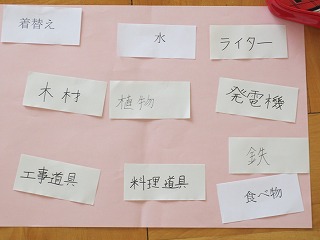 着替え
水
ライター
木材
植物
発電機
鉄
工事道具
料理道具
食べ物